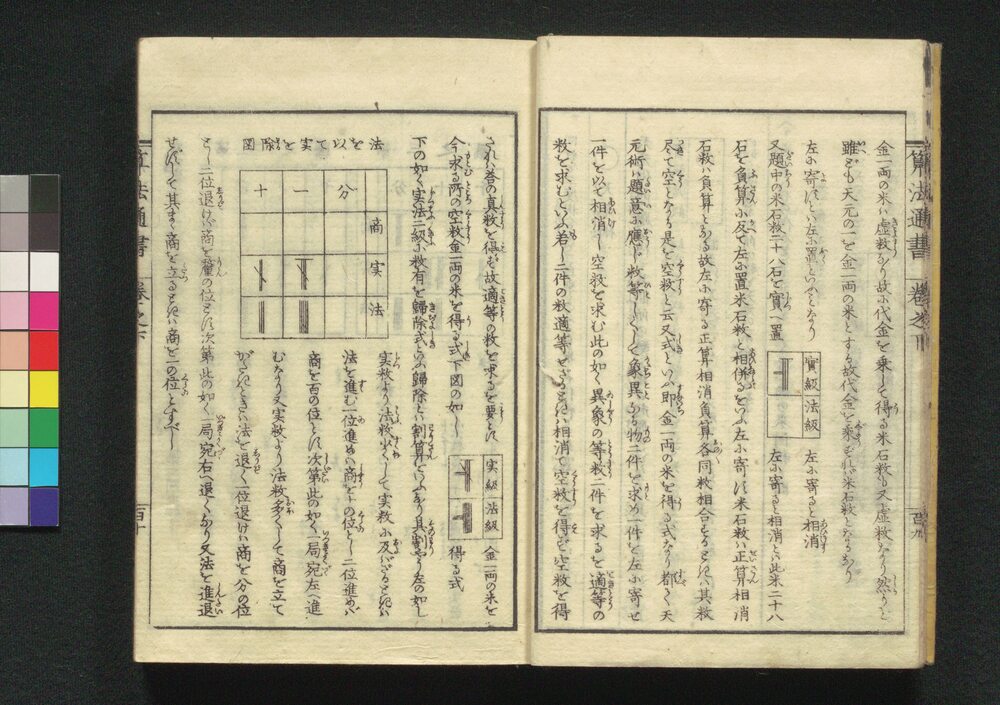 金一両の米ハ虚数なり故に代金を乗して得る米石数も又虚数なり然りと
雖ども天元の一を金一両の米とする故代金を乗ざれバ米石数となるなり
左に寄すといふ
又題中の米石数二十八石を實へ置
實級
法級
左に寄ると相消
左に寄ると相消といハ此米二十八
石を負算に反て左に置米石数と相併るをいふ左に寄す米石数ハ正算相消
石数ハ負算となる故左に寄る正算相消負算各同数相合するときハ其数
尽て空となる是を空数と云又式といふ即金一両の米を得る式なり都て天
元術ハ題意に應じ数等しくして象異なる物二件を求め一件を左に寄せ
一件を以て相消し空数を求む此の如く異象の等数二件を求るを適等の
数を求むといふ若し二件の数適等せざるときハ相消て空数を得ず空数を得
算法通書
されバ答の真数を得ず故適等の数を求るを要とす
今求る所の空数金一両の米を得る式下図の如し
実級
法級
金一両の米を
得る式
下の如く実法二級に数有を歸除式といふ歸除とハ割算といふなり其割やう左の如し
法を以て実を除図
十 一 分
商
実
法
実数より法数少くして実数に及バざるときハ
法を進む一位進めバ商を十の位とし二位進めバ
商を百の位とす次第此の如く一局宛左へ進
むなり又実数より法数多くして商を立て
がたきときハ法を退く一位退けバ商を分の位
とし二位退けバ商を釐の位とす次第此の如く一局宛右へ退くなり又法を進退
せずして其まゝ商を立るときハ商を一の位とすべし
算法通書
百十